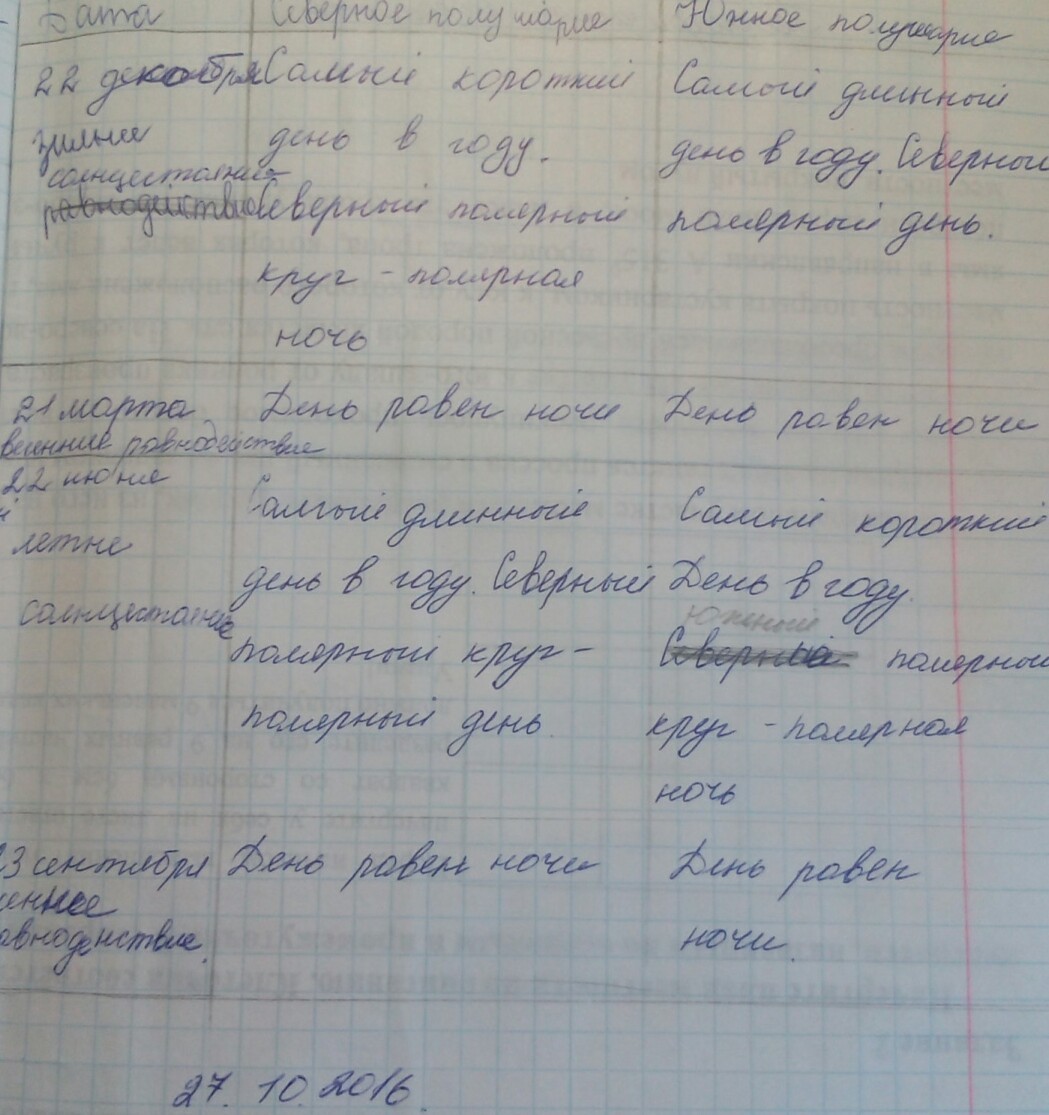 Дата Северное полушарие Южное полушарие
22 декабря Самый короткий Самый длинный
зимнее день в году. день в году. Северный
солнцестояние
равноденствие Северный полярный полярный день.
круг - полярная
ночь
21 марта День равен ночи День равен ночи
весеннее равнодействие
22 июня
Самый длинный Самый короткий
летне
день в году. Северный День в году.
солнцестояние Южный
полярный круг - Северный полярный
полярный день. круг - полярная
ночь
23 сентября День равен ночи День равен
еннее
авноденствие. ночи.
27. 10. 2016.